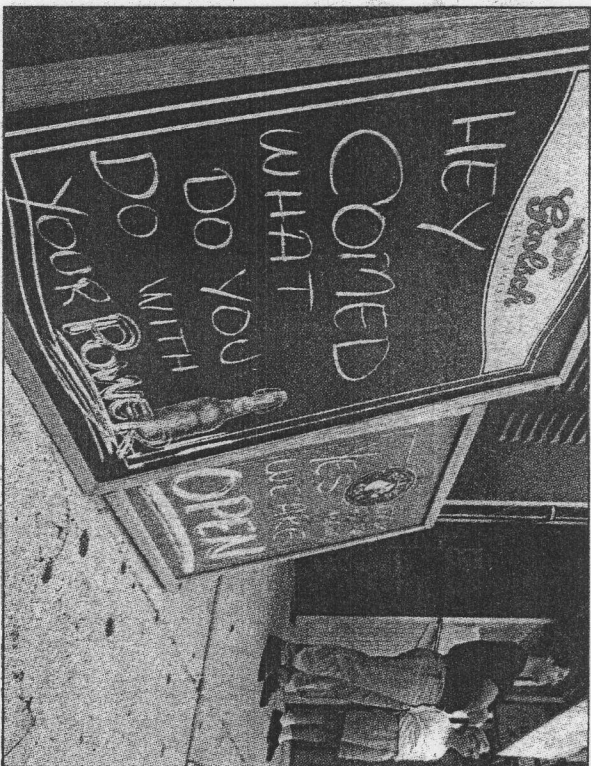 Grolsch
HEY
COMED
WHAT
DO YOU
DO WITH
YOUR POWER
YES
WE ARE
OPEN